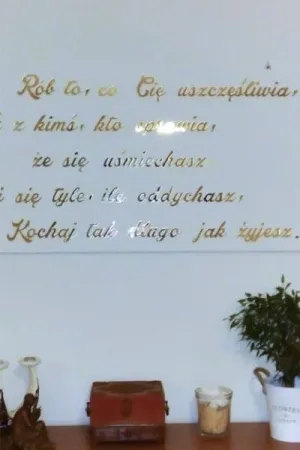 Rób to, co Cię uszczęśliwia,
z kimś, kto sprawia,
że się uśmiechasz
się tyle, ile oddychasz,
Kochaj tak długo jak żyjesz.